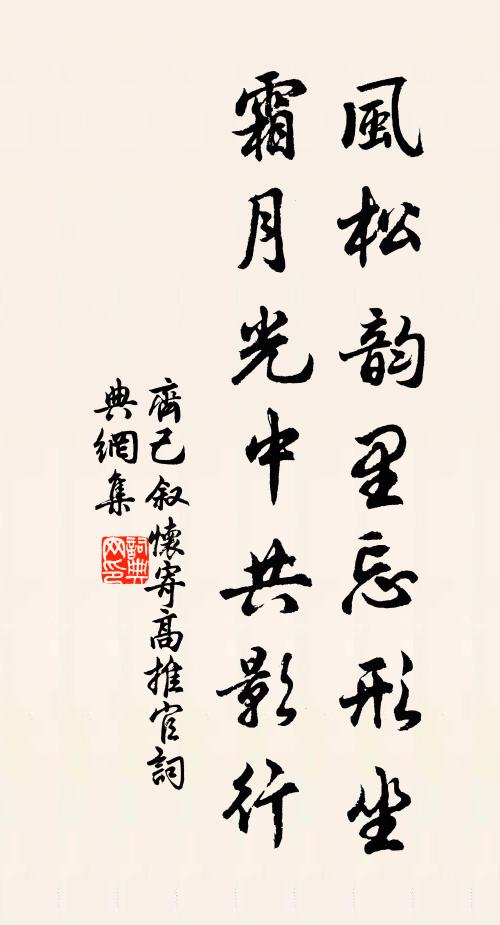 風松韵里忘形坐
霜月光中共影行
齊己叙懷寄高推官詞
典網集
詞典
网印